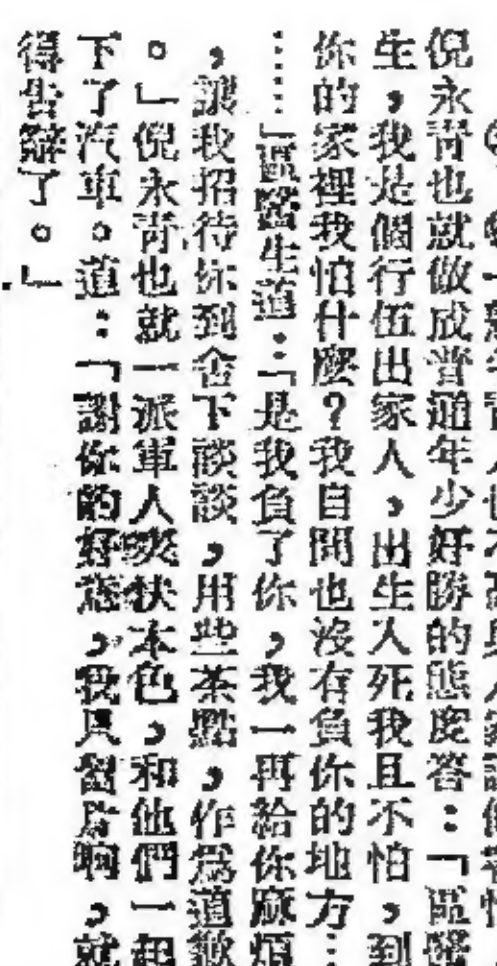 倪永青也就做成普通年少好勝的態度答：「區醫
生，我是個行伍出家人，出生入死我且不怕，到
你的家裡我怕什麼？我自問也沒有負你的地方…
……」區醫生道：「是我負了你，我一再給你麻煩
，讓我招待你到舍下談談，用些茶點，作為道歉
。」倪永青也就一派軍人爽快本色，和他們一起
下了汽車。道：「謝你的好意，我只留片晌，就
得告辭了。」